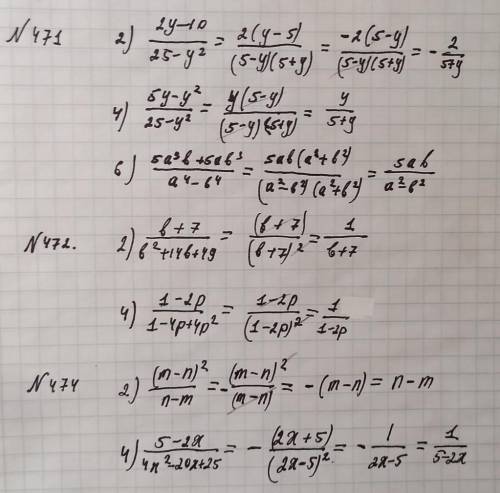 N471 2) (2y-10)/(25-y²) = 2(y-5)/((5-y)(5+y)) = -2(5-y)/((5-y)(5+y)) = -2/(5+y)
4) (5y-y²)/(25-y²) = y(5-y)/((5-y)(5+y)) = y/(5+y)
6) (5a³b+5ab³)/(a⁴-b⁴) = 5ab(a²+b²)/((a²-b²)(a²+b²)) = 5ab/(a²-b²)
N472. 2) (b+7)/(b²+14b+49) = (b+7)/(b+7)² = 1/(b+7)
4) (1-2p)/(1-4p+4p²) = (1-2p)/(1-2p)² = 1/(1-2p)
N474 2) (m-n)²/(n-m) = -(m-n)²/(m-n) = -(m-n) = n-m
4) (5-2x)/(4x²-20x+25) = -(2x+5)/(2x-5)² = -1/(2x-5) = 1/(5-2x)